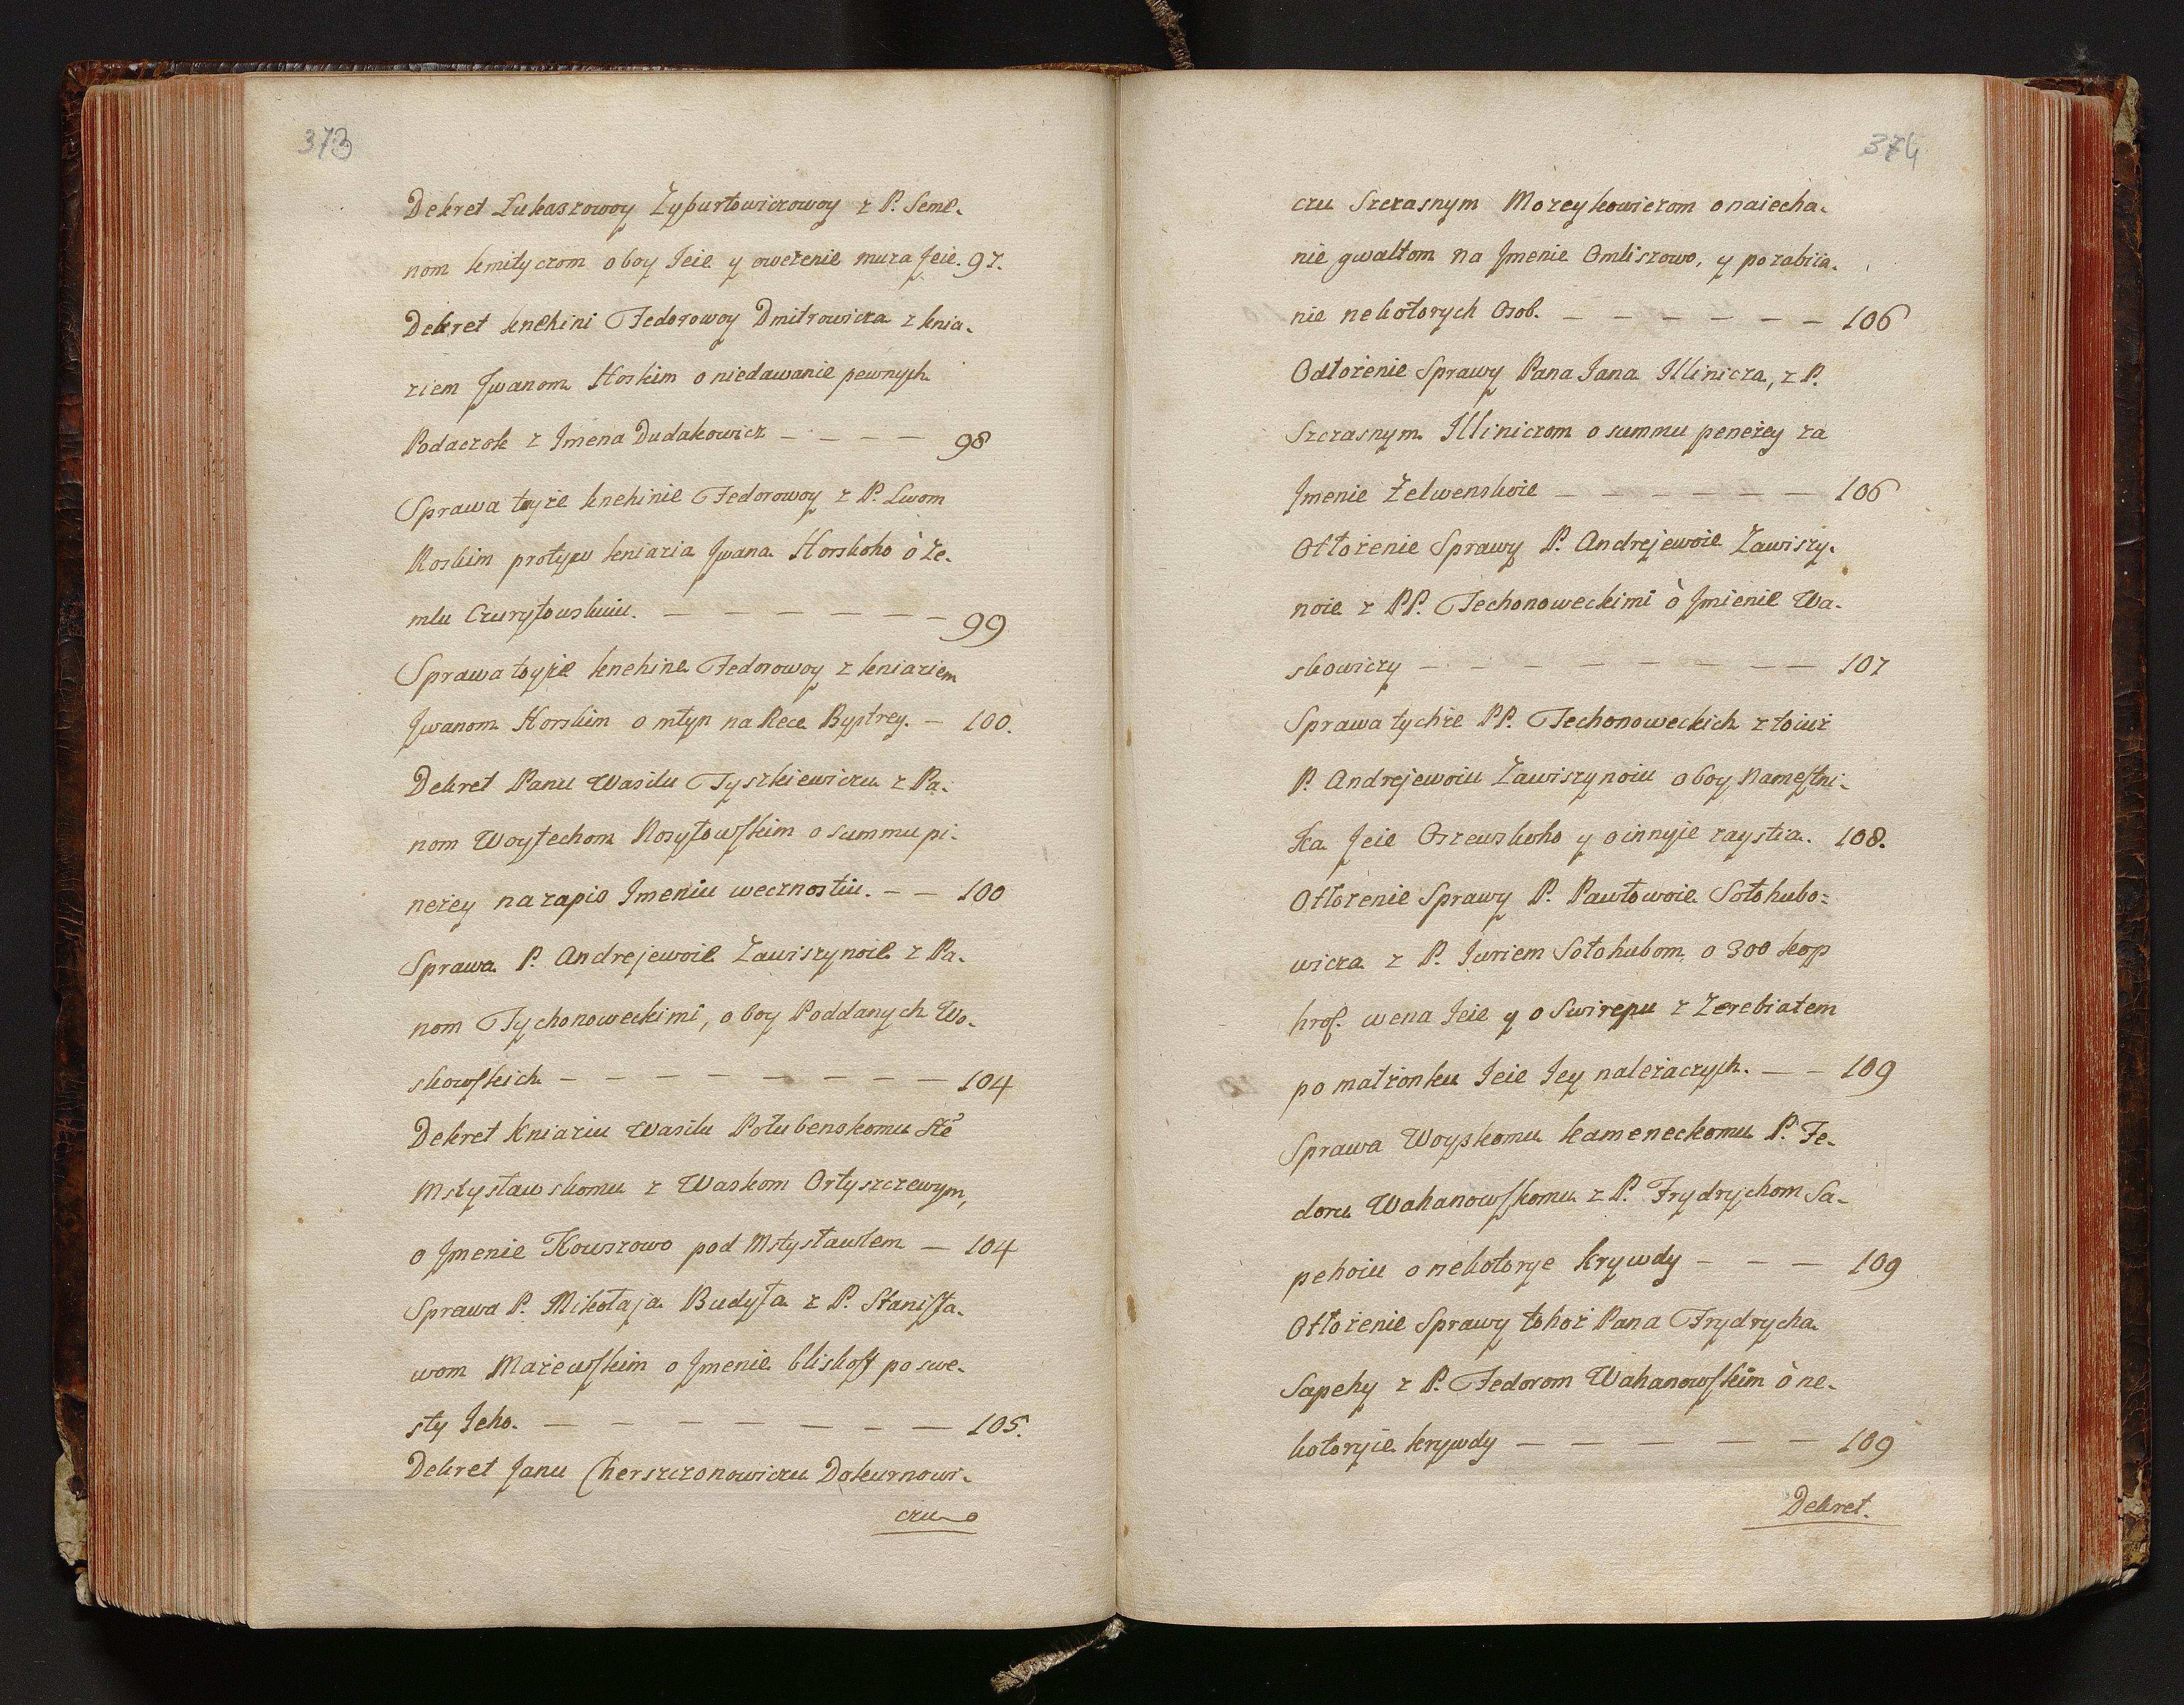 373
Dekret Łukaszowoy Zypurtowiczowoy z P. Seme.
nom kmityczom o boy Jeie y owezenie muza Jeie. 97.
Dekret knehini Fedorowoy Dmitrowicza z knia.
ziem Jwanom Horskim o niedawanie pewnych
Podaczok z Imena Dudakowicz - - - - 98
Sprawa toyże knehinie Fedorowoy z P. Lwom
Roskim protyw kniazia Jwana Horskoho ò Ze.
mlu Czuryłowskuiu. - - - - - - 99
Sprawa toyże knehine Fedorowoy z kniaziem
Jwanom Horskim o młyn na Rece Bystrey. - 100.
Dekret Panu Wasilu Tyszkiewiczu z Pa.
nom Woytechom Nosyłowskim o summu pi.
neżey na zapis Imeniu wecznostiu. - - 100
Sprawa P. Andrejewoie Zawiszynoie z Pa.
nom Tychonoweckimi, o boy Poddanych Wo.
skowskich - - - - - - - - 104
Dekret Kniaziu Wasilu Połubenskomu Ste
Mstysławskomu z Waskom Ortyszczewym,
o Jmenie Kowszowo pod Mstysławlem - 104
Sprawa P. Mikołaja Budyła z P. Stanisła.
wom Mażewskim o Jmenie bliskost po swe.
sty Jeho. - - - - - - - - 105.
Dekret Janu Cherszczonowiczu Dokurnowi.
czu
374
czu Szczasnym Mozeykowiczom o naiecha.
nie gwałtom na Jmenie Omliszowo, y pozabiia.
nie nekotorych Osob. - - - - - - 106
Odłożenie Sprawy Pana Jana Illinicza, z P.
Szczasnym Illiniczom o summu peneżey za
Jmenie Zelwenskoie - - - - - - 106
Otłożenie Sprawy P. Andrejewoie Zawiszy.
noie z PP. Techonoweckimi ò Jmienie Wa.
skowiczy - - - - - - - - - 107
Sprawa tychże PP. Techonoweckich z toiuż
P. Andrejewoiu Zawiszynoiu o boy Namestni.
ka Jeie Oszewskoho y o innyie zaystia. 108.
Otłożenie Sprawy P. Pawłowoie Sołohubo=
wicza z P. Juriem Sołohubom o 300 kop
hros. wena Jeie y o Swirepu z Zerebiatem
po małżonku Jeie Jey należaczych. - - 109
Sprawa Woyskomu kameneckomu P. Fe.
doru Wahanowskomu z P. Frydrychom Sa.
pehoiu o nekotorye krywdy - - - 109
Otłożenie Sprawy tohoż Pana Frydrycha
Sapehy z P. Fedorom Wahanowskim ò ne.
kotoryie krywdy - - - - - - 109
Dekret.